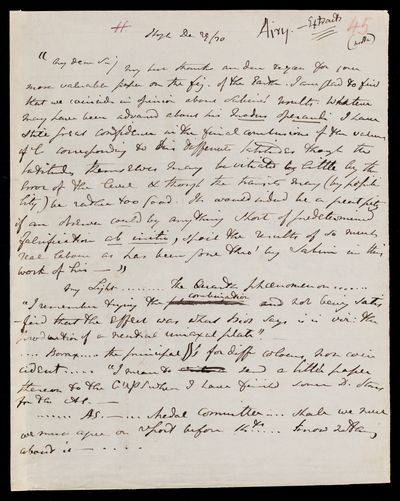 Slough Dec 29/30 Airy. — Extracts 45
"My dear Sir, my best thanks are due to you for your
most valuable paper on the fig. of the Earth. I am glad to find
that we coincide in opinion about Sabine's results. Whatever
may have been advanced about his modus operandi I have
great confidence in the final conclusions of the values
of l corresponding to his different latitudes though the
latitudes themselves may be vitiated by little by the
error of the level & though the transits may (by possibi
lity) be rather too good. It would indeed be a great pity
if an observer could by anything short of predetermined
falsification ab initio, spoil the results of so much
real labour as has been gone thro' by Sabine in this
work of his — "
My Light ........ the phænomenon ......
"I remember trying the combination and not being satis
fied that the effect was what Biot says it is viz: the
production of a neutral uniaxal plate"
.... Borax ... the principal for diff colours, non coin
cident ..... "I mean to send a little paper
thereon to the when I have finished some D. Stars
for the
....... AS. — ... Medal Committee .... shall we meet
we must agree on report before 14th .... know
about it — . . . .